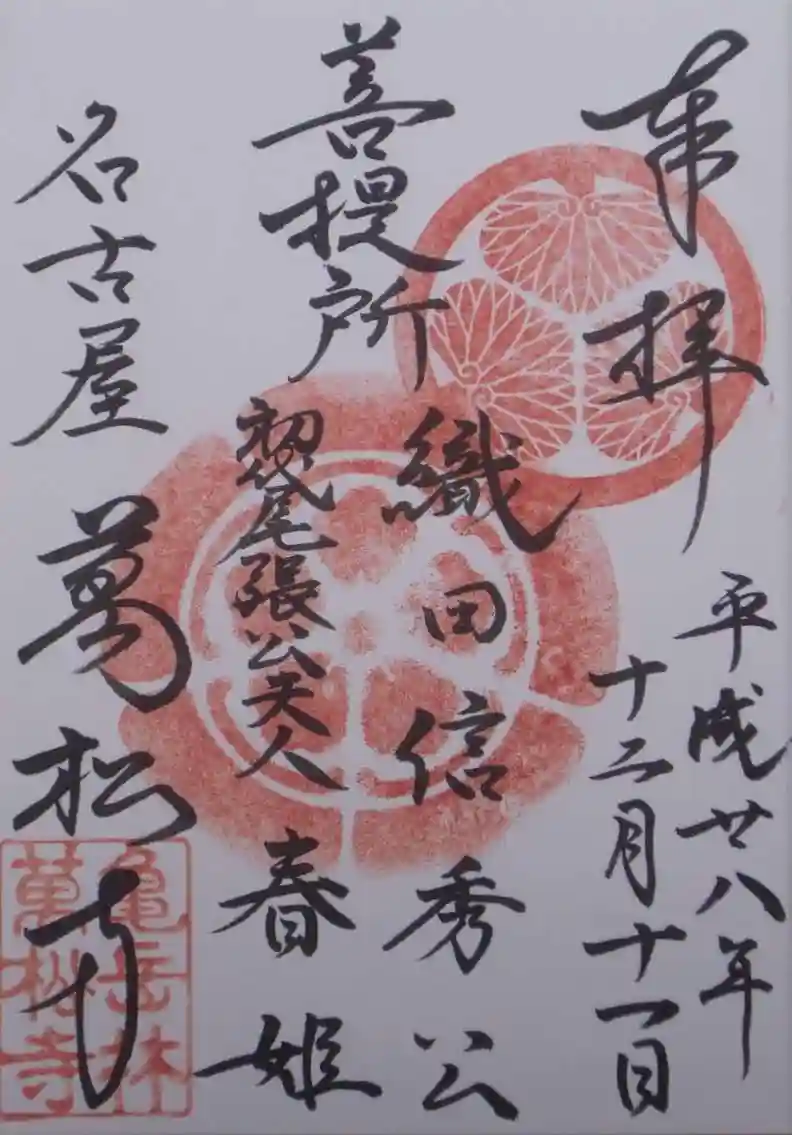 奉拝
平成廿八年
十二月十一日
菩提所
織田信秀公
初代尾張公夫人
春姫
名古屋
萬松寺
亀岳林
萬松寺